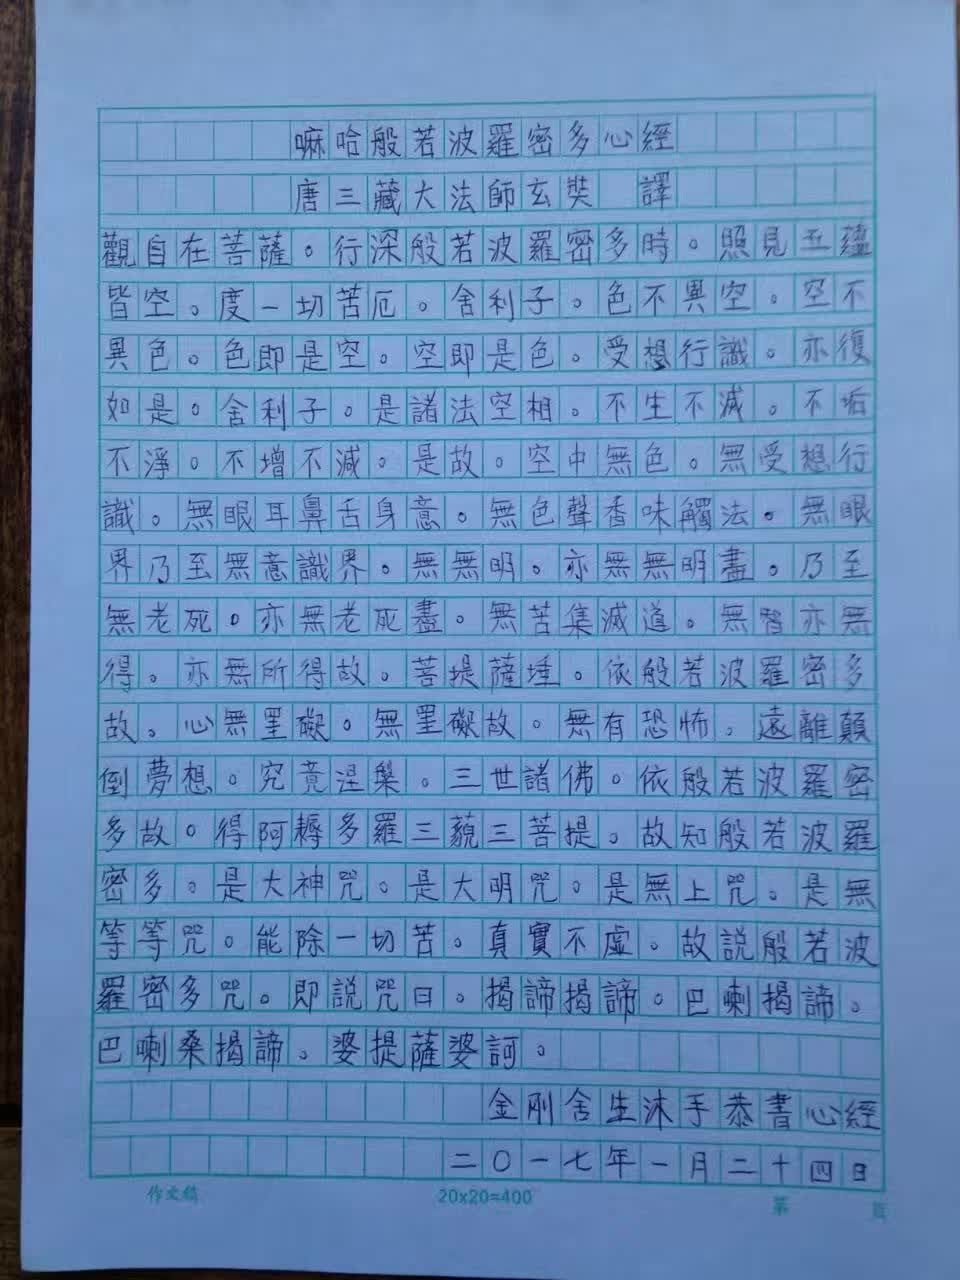 嘛哈般若波羅密多心經
唐三藏大法師玄奘 譯
觀自在菩薩。行深般若波羅密多時。照見五蘊
皆空。度一切苦厄。舍利子。色不異空。空不
異色。色即是空。空即是色。受想行識。亦復
如是。舍利子。是諸法空相。不生不滅。不垢
不淨。不增不減。是故。空中無色。無受想行
識。無眼耳鼻舌身意。無色聲香味觸法。無眼
界乃至無意識界。無無明。亦無無明盡。乃至
無老死。亦無老死盡。無苦集滅道。無智亦無
得。亦無所得故。菩提薩埵。依般若波羅密多
故。心無罣礙。無罣礙故。無有恐怖。遠離顛
倒夢想。究竟涅槃。三世諸佛。依般若波羅密
多故。得阿耨多羅三藐三菩提。故知般若波羅
密多。是大神咒。是大明咒。是無上咒。是無
等等咒。能除一切苦。真實不虛。故說般若波
羅密多咒。即說咒曰。揭諦揭諦。巴喇揭諦。
巴喇桑揭諦。婆提薩婆訶。
金剛舍生沐手恭書心經
二〇一七年一月二十四日
作文稿 20x20=400 第 頁